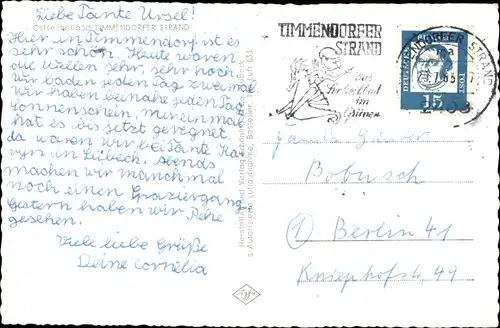 Liebe Tante Ursel!
Ostseeheilbad TIMMENDORFER STRAND
Hier in Timmendorf ist es
sehr schön. Heute waren
die Wellen sehr, sehr hoch.
Wir baden jeden Tag zweimal
Wir haben beinahe jeden Tag
Sonnenschein. Nur einmal
hat es bis jetzt geregnet,
da waren wir bei Tante Ka-
in Lübeck. Abends
machen wir manchmal
noch einen Graziergang
Gestern haben wir Rehe
gesehen.
Viele liebe Grüße
Deine Cornelia
Herstellung und Verlag Schöning & Co., Lübeck
TIMMENDORFER
STRAND
Das
im
Grünen
TIMMENDORFER STRAND
DEUTSCHE BUNDESPOST
15
Familie Günter
Bobusch
1 Berlin 41
Kniephofstr. 49